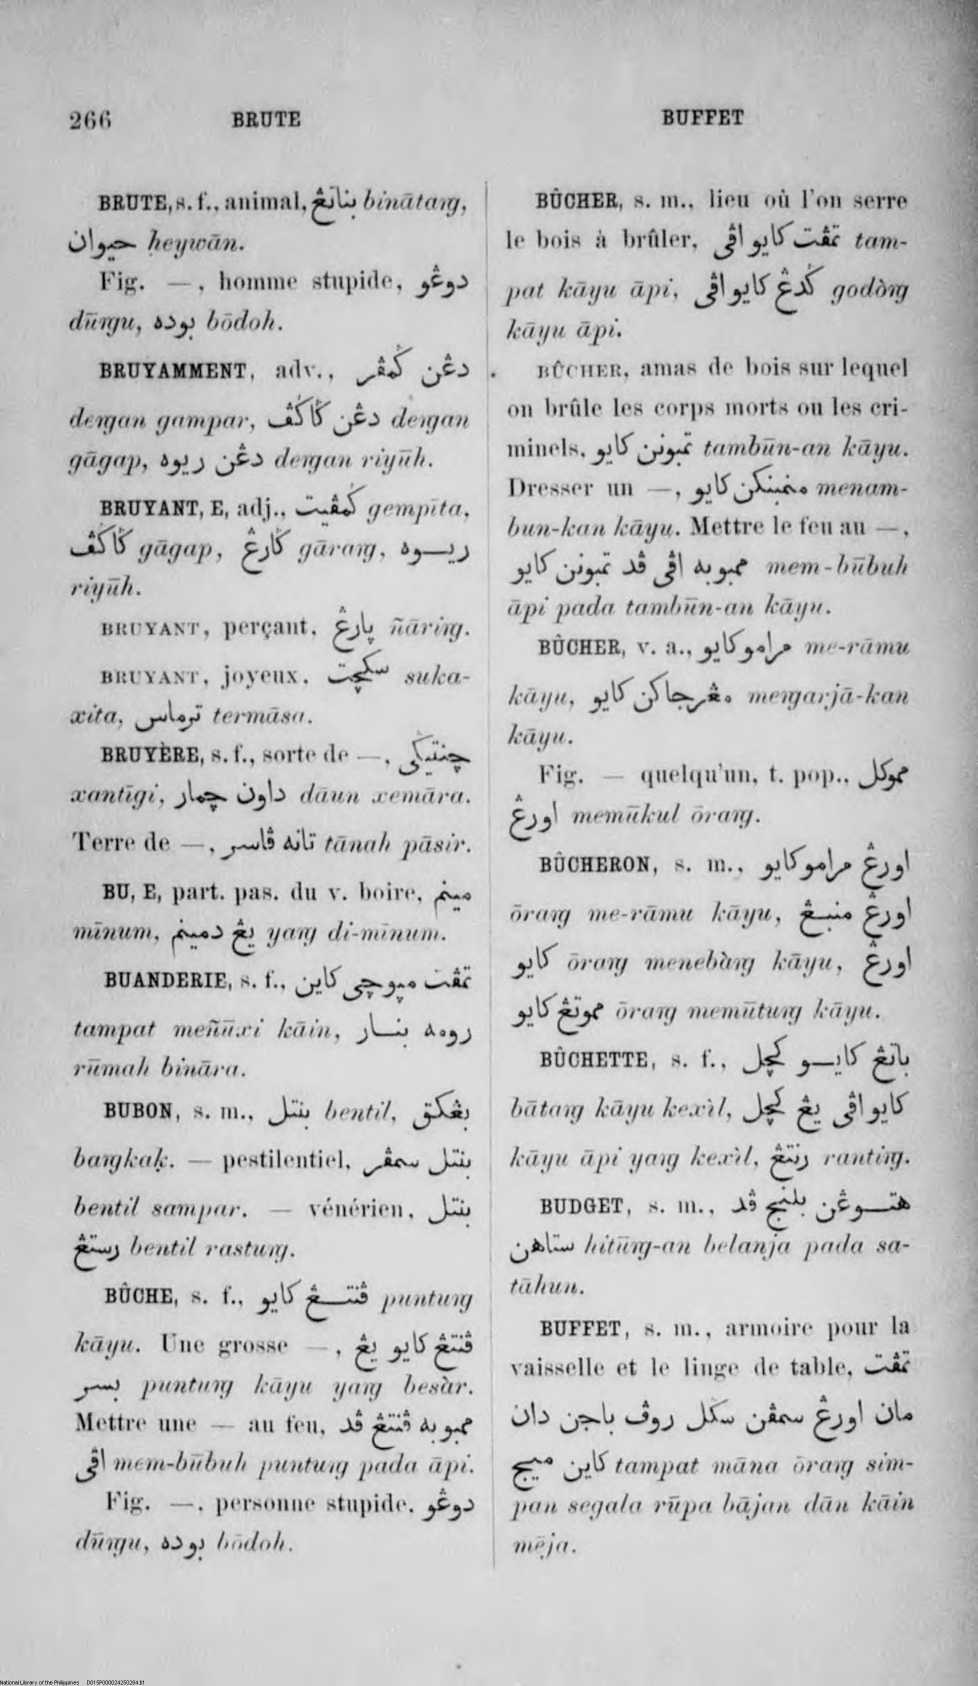 266 BRUTE BUFFET
BRUTE, s. f., animal, بناتڠ bīnātaŋ,
حيوان ḥeywān.
Fig. —, homme stupide, دوڠو
dūŋu, بوده bōdoh.
BRUYAMMENT, adv., دڠن ݢمڤر
deŋan gampar, دڠن ݢاݢڤ deŋan
gāgap, دڠن ريوه deŋan riyūh.
BRUYANT, E, adj., ݢمڤيت gempīta,
ݢاݢڤ gāgap, ݢارڠ gāraŋ, ريوه
riyūh.
BRUYANT, perçant, ڽارڠ ñāriŋ.
BRUYANT, joyeux, سكچت suka-
xita, ترماس termāsa.
BRUYÈRE, s. f., sorte de —, چنتيݢي
xantīgi, داون چمار dāun xemāra.
Terre de —, تانه ڤاسر tānah pāsir.
BU, E, part. pas. du v. boire, مينم
mīnum, يڠ دمينم yaŋ di-mīnum.
BUANDERIE, s. f., تمڤت مڽوچي كاين
tampat meñūxi kāin, رومه بنار
rūmah bināra.
BUBON, s. m., بنتل bentil, بڠكق
baŋkaḳ. — pestilentiel, بنتل سمڤر
bentil sampar. — vénérien, بنتل
رستڠ bentil rastuŋ.
BÛCHE, s. f., ڤنتڠ كايو puntuŋ
kāyu. Une grosse —, ڤنتڠ كايو يڠ
بسر puntuŋ kāyu yaŋ besàr.
Mettre une — au feu, ممبوبه ڤنتڠ ڤد
اڤي mem-būbuh puntuŋ pada āpi.
Fig. —, personne stupide, دوڠو
dūŋu, بوده bōdoh.
BÛCHER, s. m., lieu où l'on serre
le bois à brûler, تمڤت كايو اڤي tam-
pat kāyu āpi, ݢدڠ كايو اڤي godòŋ
kāyu āpi.
BÛCHER, amas de bois sur lequel
on brûle les corps morts ou les cri-
minels, تمبونن كايو tambūn-an kāyu.
Dresser un —, منمبنكن كايو menam-
bun-kan kāyu. Mettre le feu au —,
ممبوبه اڤي ڤد تمبونن كايو mem-būbuh
āpi pada tambūn-an kāyu.
BÛCHER, v. a., مرامو كايو me-rāmu
kāyu, مڠرجاكن كايو meŋarjā-kan
kāyu.
Fig. — quelqu'un, t. pop., مموكل
اورڠ memūkul ōraŋ.
BÛCHERON, s. m., اورڠ مرامو كايو
ōraŋ me-rāmu kāyu, اورڠ منبڠ
كايو ōraŋ menebàŋ kāyu, اورڠ
مموتڠ كايو ōraŋ memūtuŋ kāyu.
BÛCHETTE, s. f., باتڠ كايو كچل
bātaŋ kāyu kexìl, كايو اڤي يڠ كچل
kāyu āpi yaŋ kexìl, رنتڠ rantiŋ.
BUDGET, s. m., هتوڠن بلنج ڤد
ستاهن hitūŋ-an belanja pada sa-
tāhun.
BUFFET, s. m., armoire pour la
vaisselle et le linge de table, تمڤت
مان اورڠ سمڤن سݢل روڤ باجن دان
كاين ميج tampat māna ōraŋ sim-
pan segala rūpa bājan dān kāin
mēja.
National Library of the Philippines